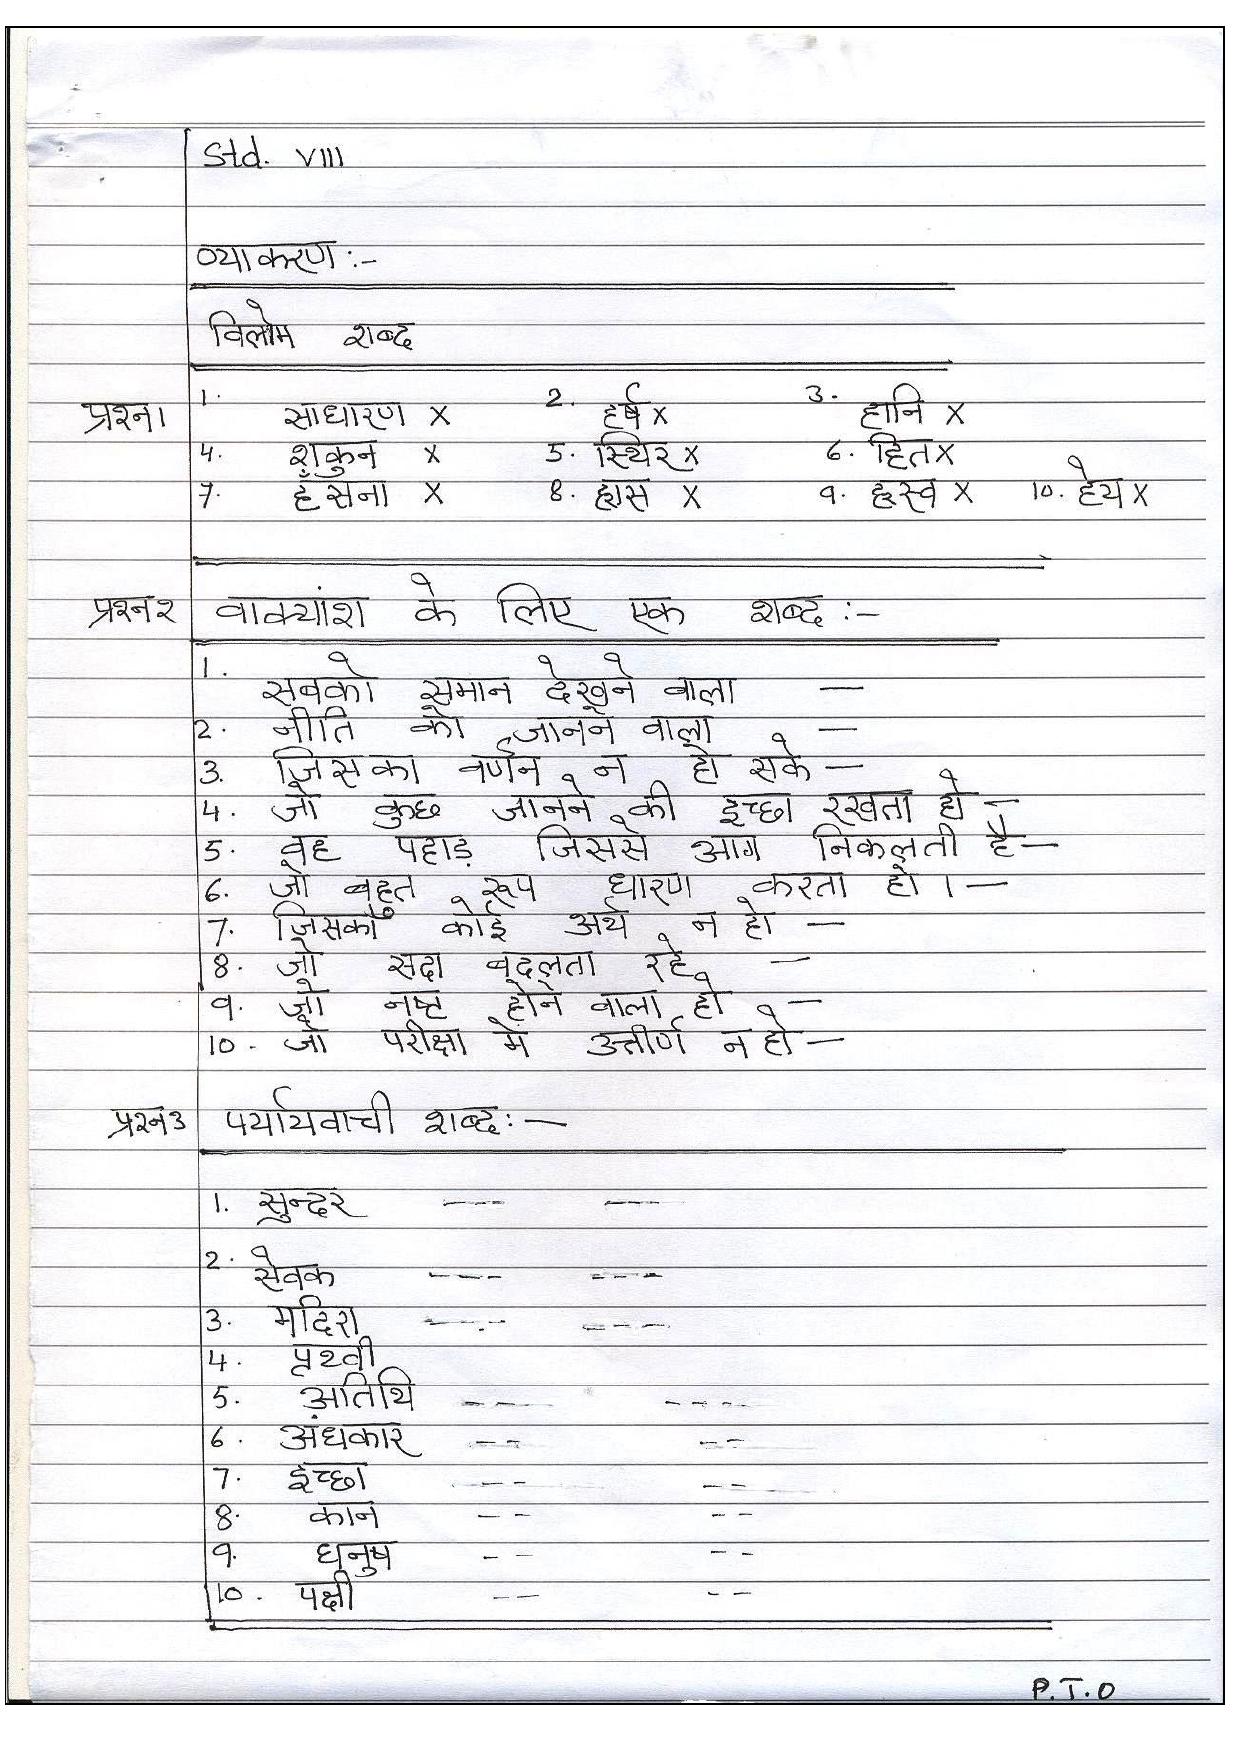 Std. VIII
व्याकरण :-
विलोम शब्द
प्रश्न1 1. साधारण x 2. हर्ष x 3. हानि x
4. शकुन x 5. स्थिर x 6. हित x
7. हँसना x 8. ह्रास x 9. ह्रस्व x 10. हेय x
प्रश्न२ वाक्यांश के लिए एक शब्द :-
1. सबको समान देखने वाला —
2. नीति को जानने वाला —
3. जिसका वर्णन न हो सके —
4. जो कुछ जानने की इच्छा रखता हो —
5. वह पहाड़ जिससे आग निकलती है —
6. जो बहुत रूप धारण करता हो । —
7. जिसका कोई अर्थ न हो —
8. जो सदा बदलता रहे —
9. जो नष्ट होने वाला हो —
10. जो परीक्षा में उत्तीर्ण न हो —
प्रश्न३ पर्यायवाची शब्द :—
1. सुन्दर --- ---
2. सेवक --- ---
3. मदिरा --- ---
4. पृथ्वी
5. अतिथि --- ----
6. अंधकार -- --
7. इच्छा -- --
8. कान -- --
9. धनुष -- --
10. पक्षी -- --
P.T.O